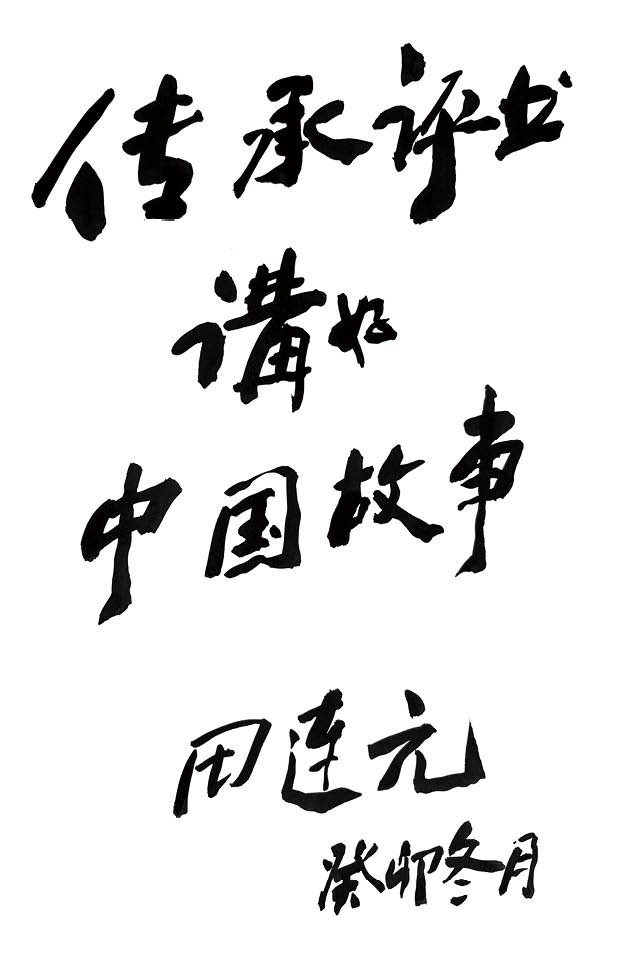 传承评书
講好
中国故事
田连元
癸卯冬月